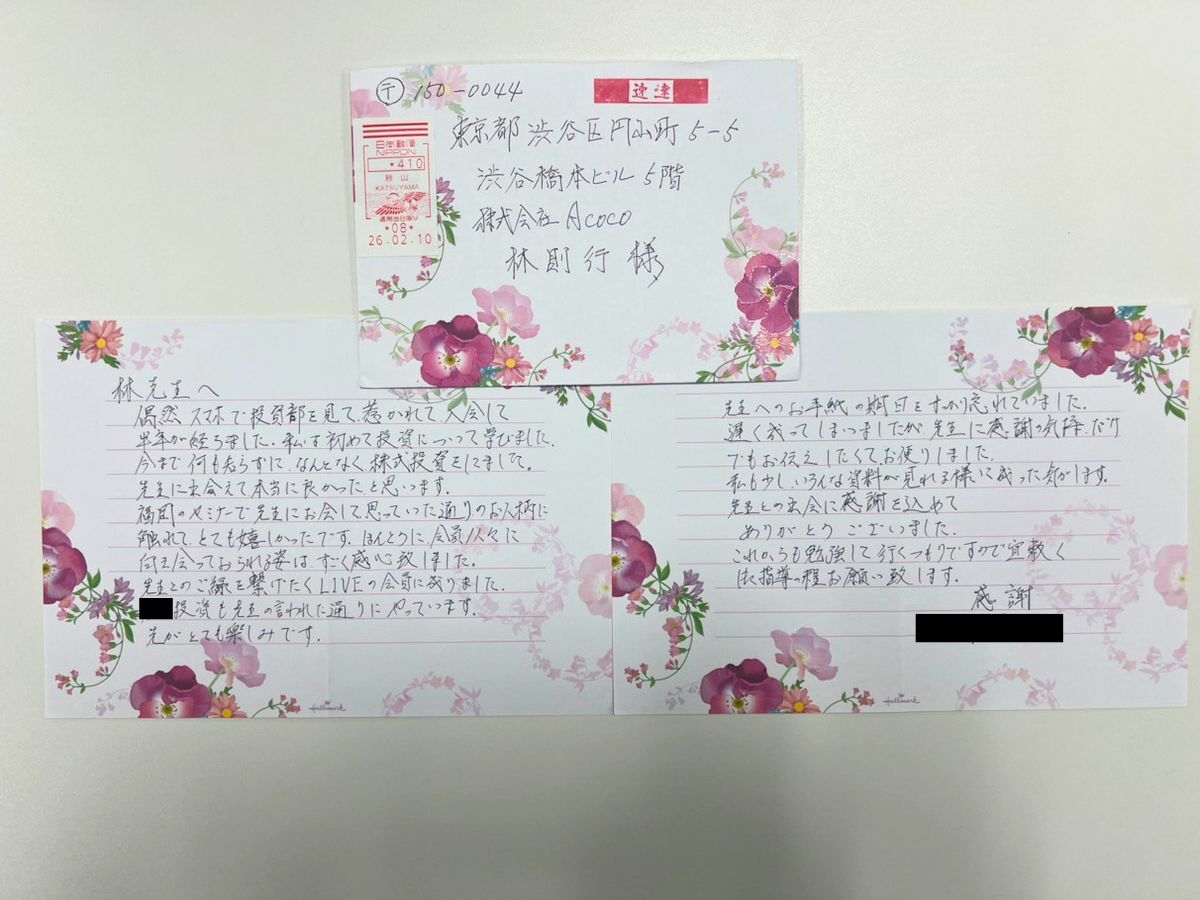 〒 150-0044
速達
東京都渋谷区円山町5-5
渋谷橋本ビル5階
株式会社Acoco
林則行様
日本郵便
NIPPON
*410
勝山
KATSUYAMA
適用当日限り
*08*
26.02.10
林先生へ
偶然スマホで投資部を見て、惹かれて入会して
半年が経ちました。私は初めて投資について学びました。
今まで何も知らずに、なんとなく株式投資をしてまして。
先生に出会えて本当に良かったと思います。
福岡のセミナーで先生にお会して思っていた通りのお人柄に
触れて、とても嬉しかったです。ほんとうに、会員の人々に
向き会っておられる姿は、すごく感心致しました。
先生とのご縁を繋げたくLIVEの会員に成りました。
投資も先生の言われた通りにやっています。
先がとても楽しみです。
Hallmark
先生へのお手紙の期日をすっかり忘れていました。
遅く成ってしまつましたが先生に感謝の気持だけ
でもお伝えしたくてお便りしました。
私も少しいろんな資料が見れる様に成った気がします。
先生との出会に感謝を込めて
ありがとうございました。
これからも勉強して行くつもりですので宜敷く
御指導の程お願い致します。
感謝
Hallmark